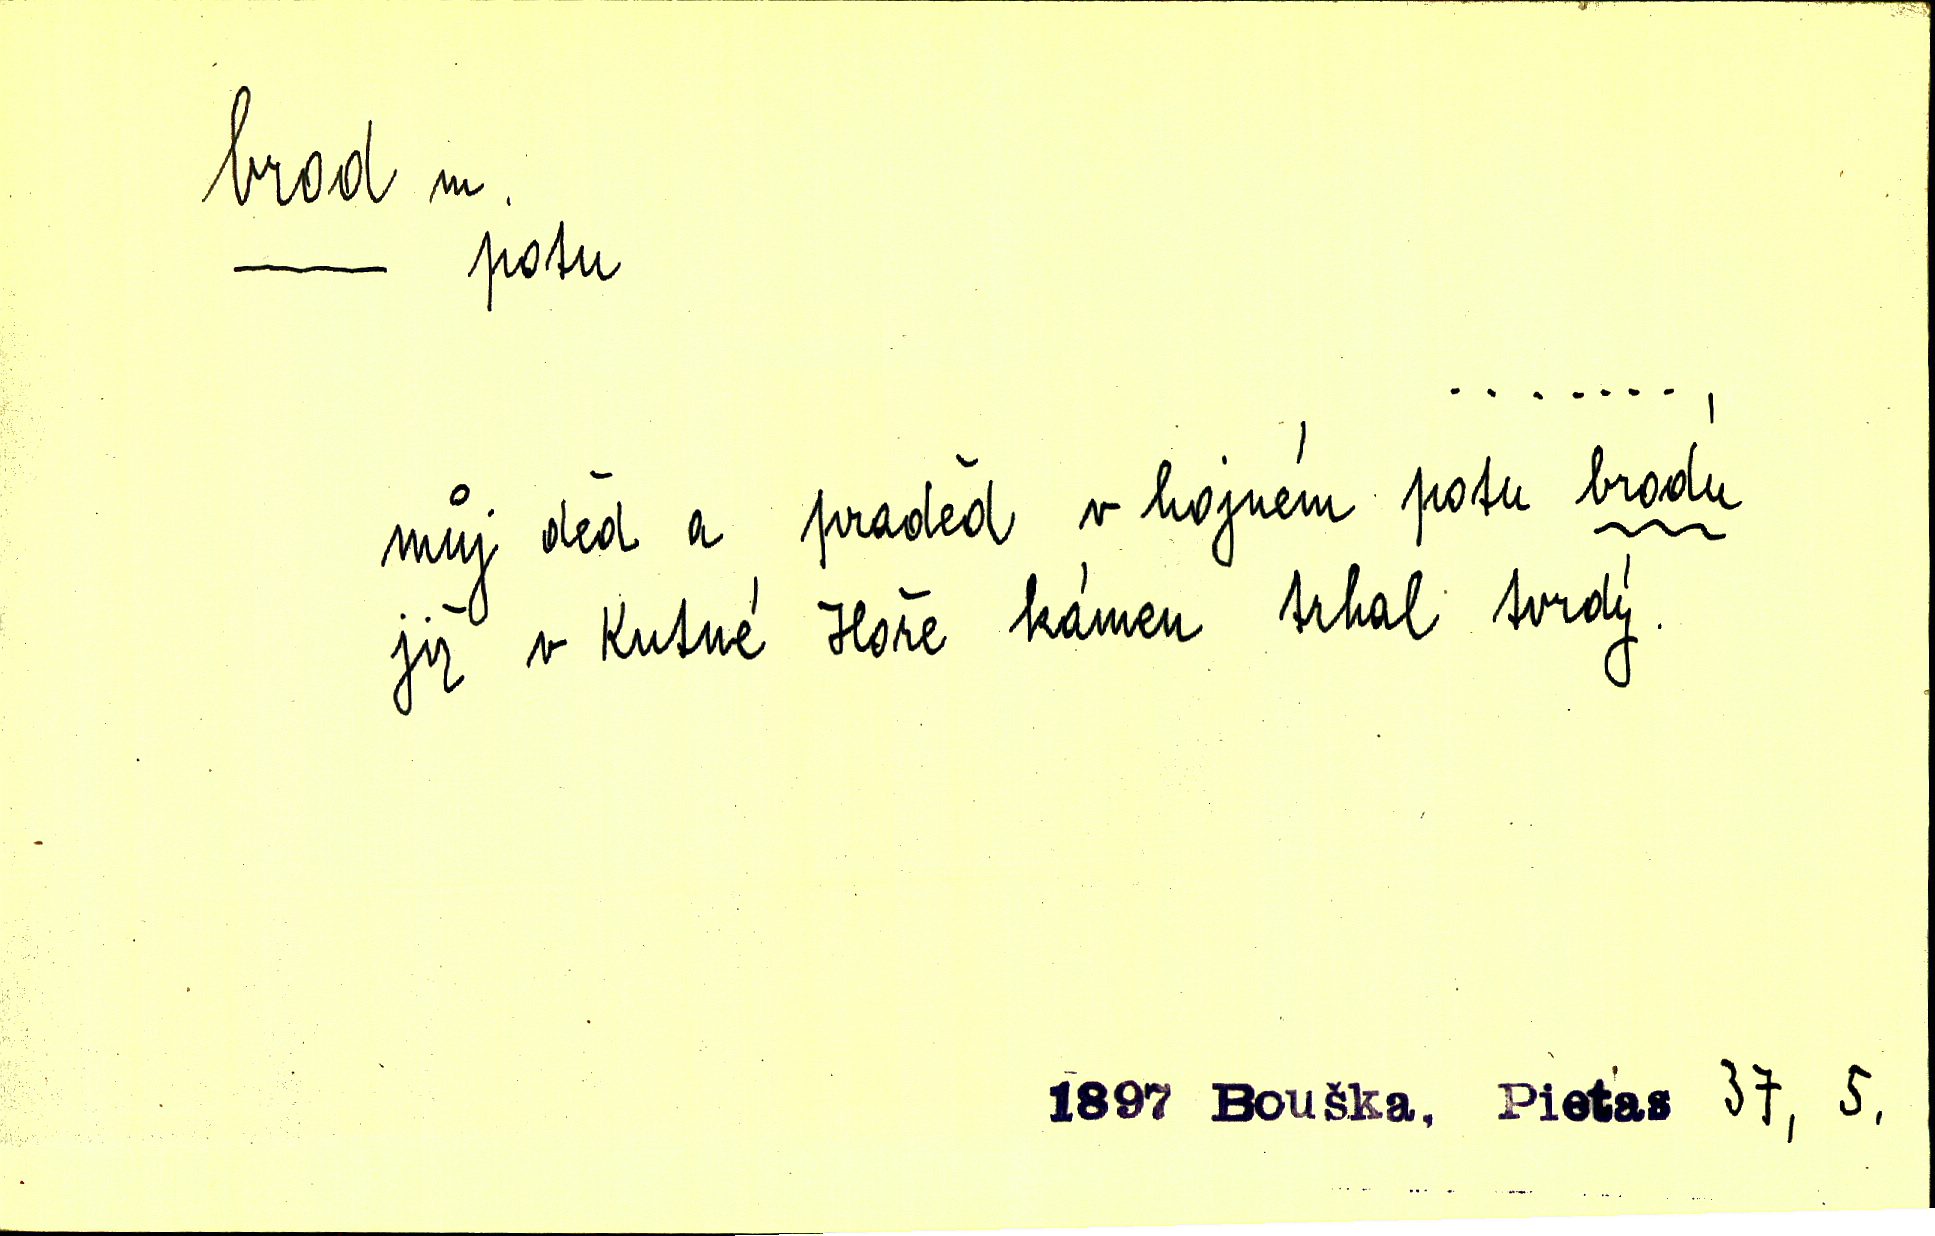 brod m.
potu
. . . . . . . ,
můj děd a praděd v hojném potu brodu
již v Kutné Hoře kámen trhal tvrdý.
1897 Bouška, Pietas 37, 5.